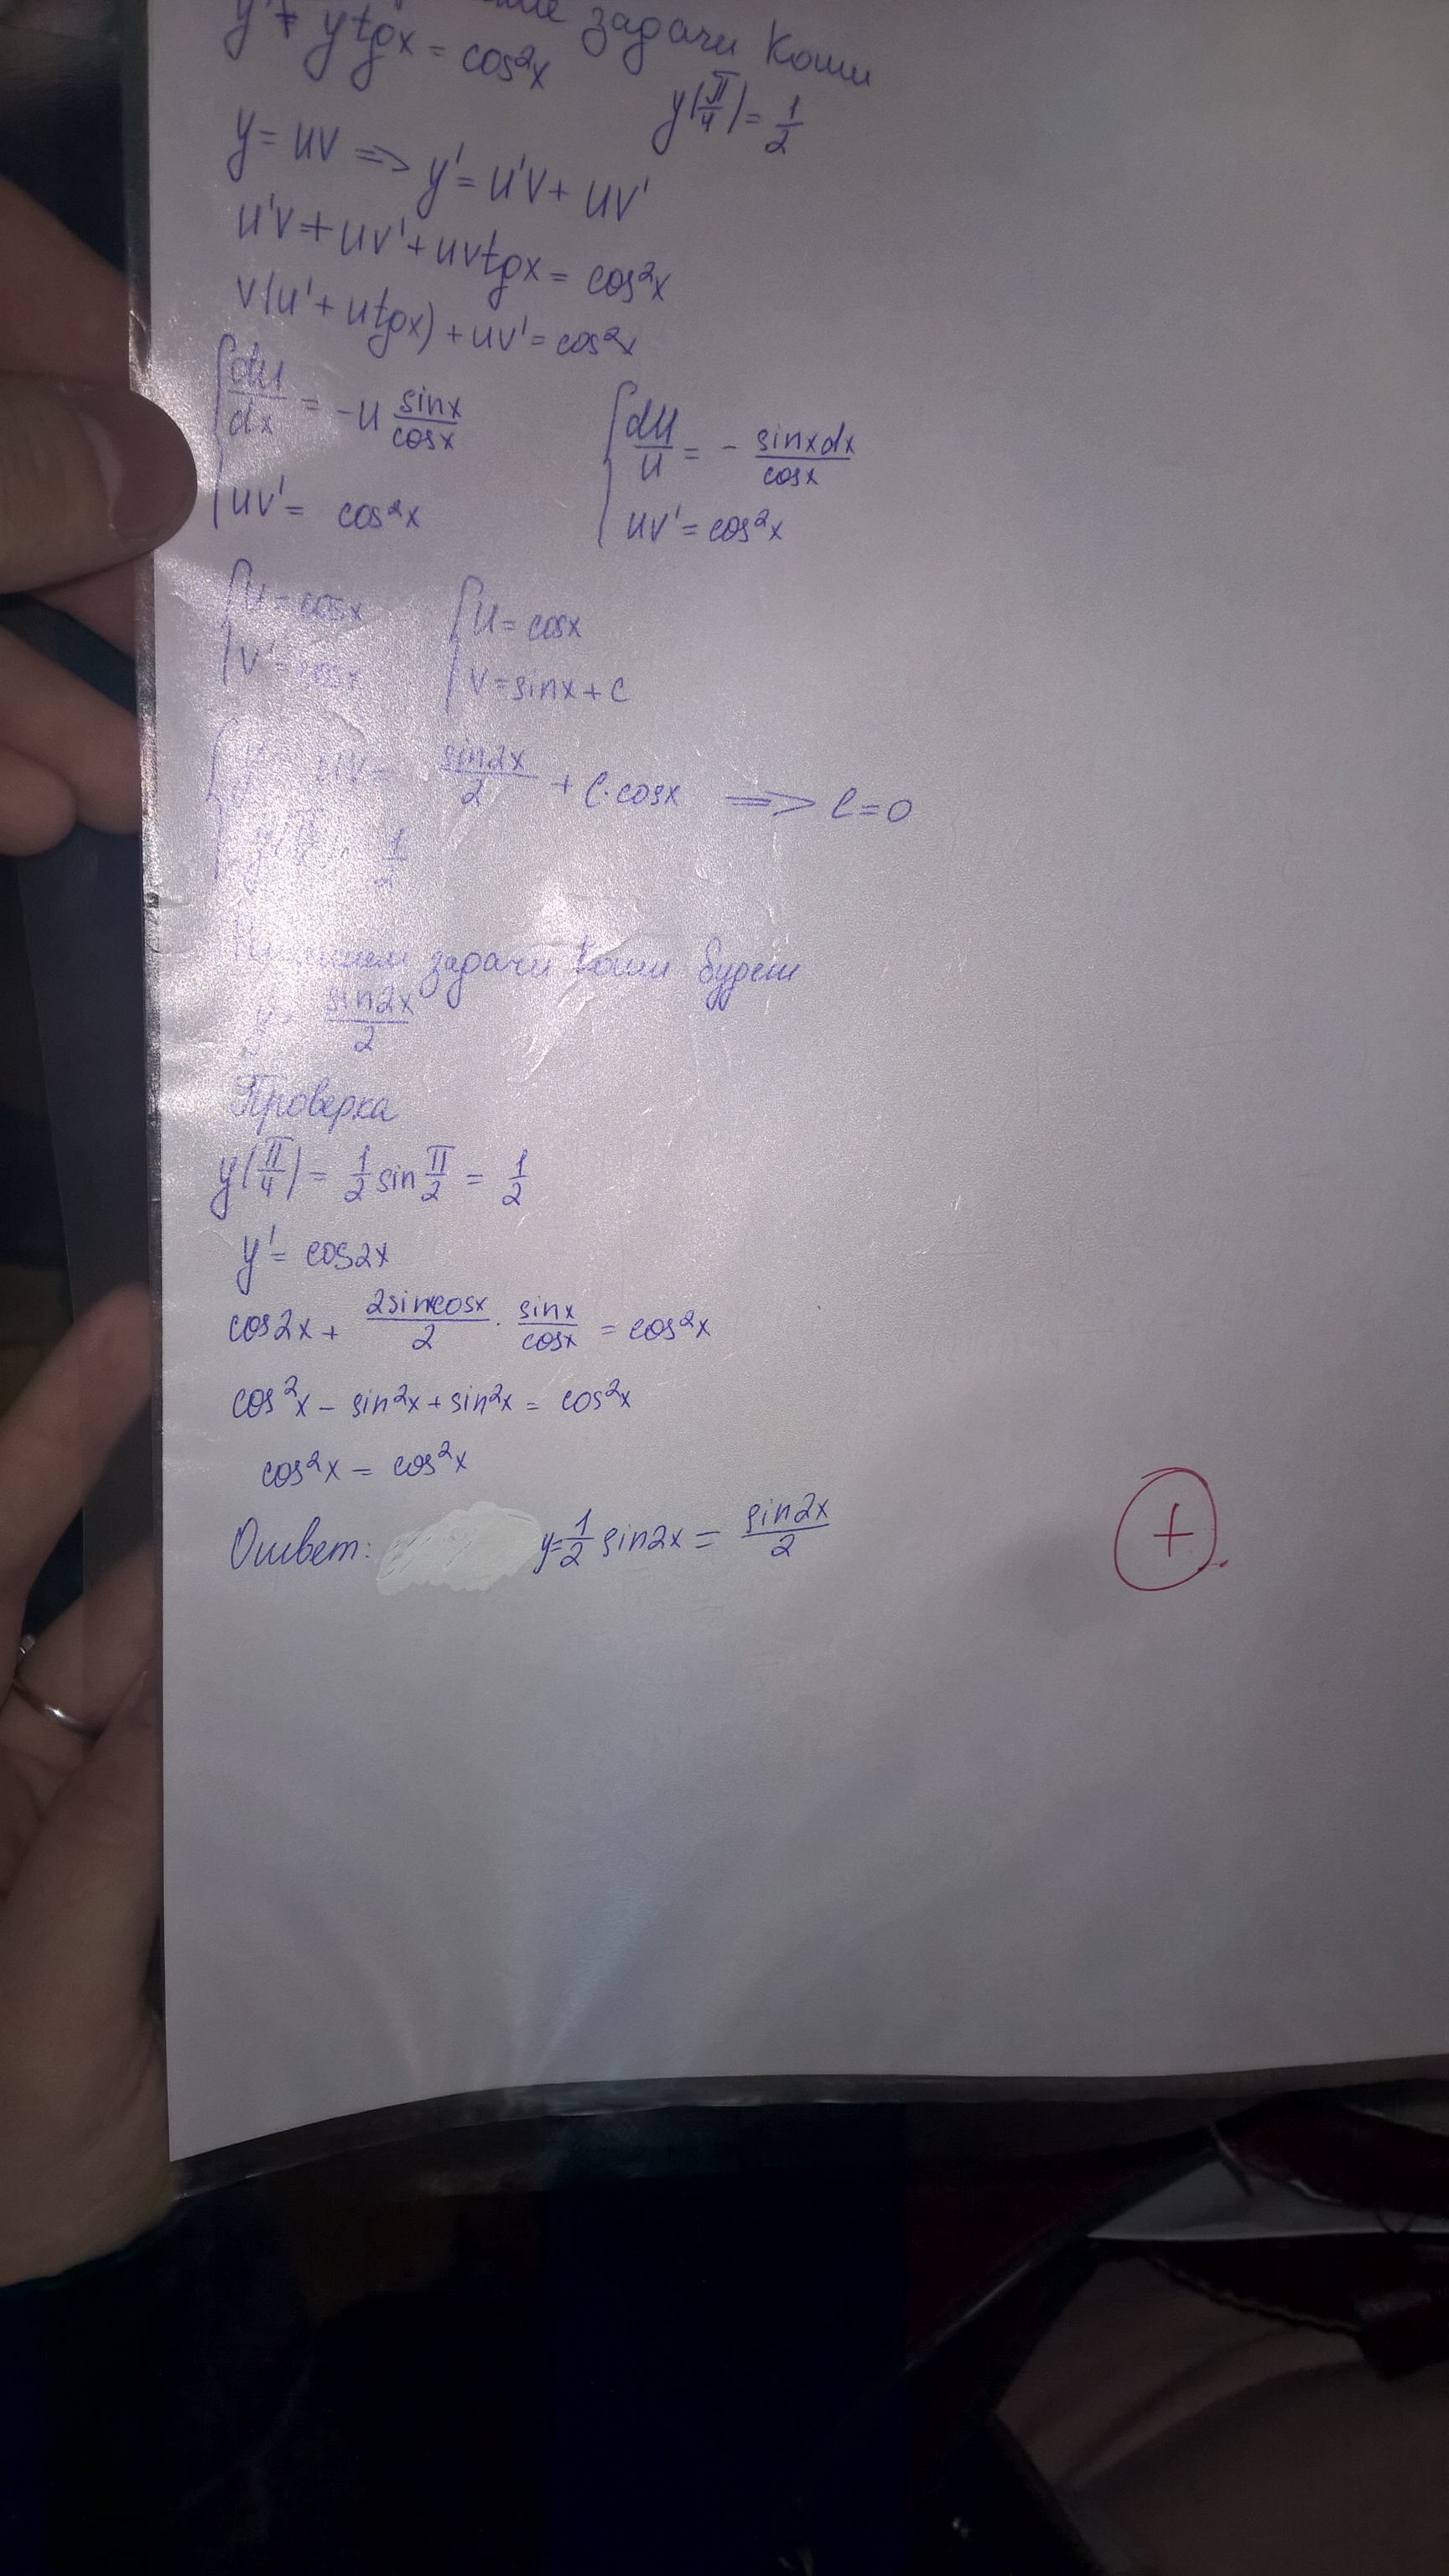 задачи Коши
y' + ytgx = cos²x
y(π/4) = 1/2
y = uv => y' = u'v + uv'
u'v + uv' + uvtgx = cos²x
v(u' + utgx) + uv' = cos²x
{ du/dx = -u sinx/cosx { du/u = - sinxdx/cosx
uv' = cos²x uv' = cos²x
{ u = cosx { u = cosx
v' = cosx v = sinx + c
{ y = uv = sin2x/2 + C·cosx => C = 0
y(π/4) = 1/2
задачи Коши будет
y = sin2x/2
Проверка
y(π/4) = 1/2 sin π/2 = 1/2
y' = cos2x
cos2x + 2sinxcosx/2 · sinx/cosx = cos²x
cos²x - sin²x + sin²x = cos²x
cos²x = cos²x
Ответ: y = 1/2 sin2x = sin2x/2
+